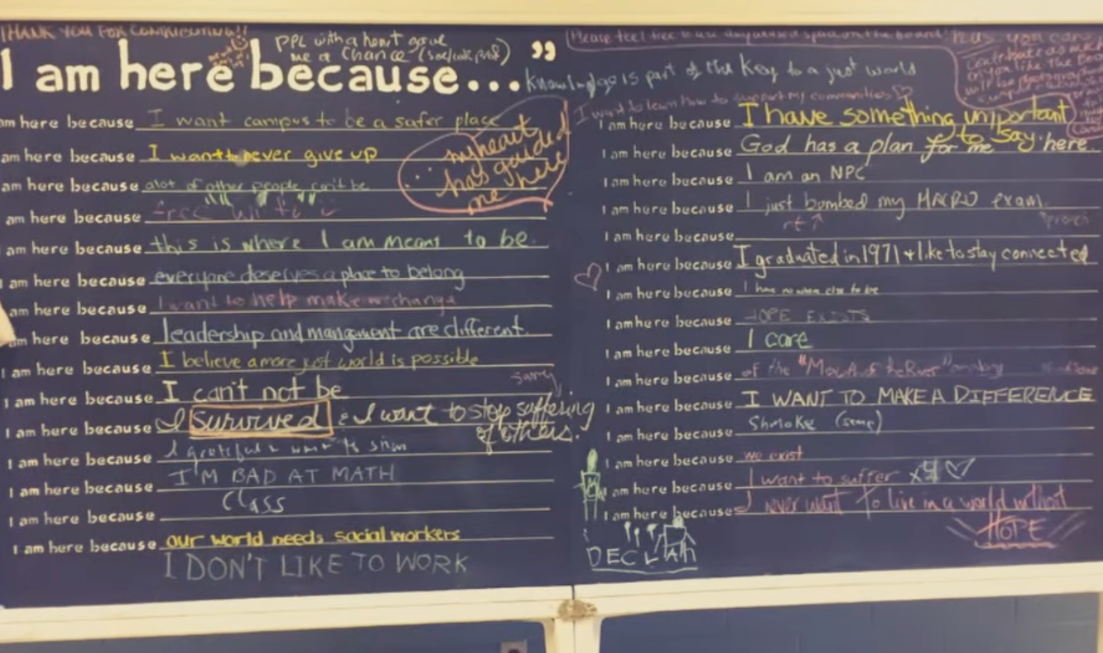 THANK YOU FOR CONTRIBUTING!!
PPL with a heart gave
me a chance
I am here because... ”
Knowledge is part of the key to a just world
am here because I want campus to be a safer place
am here because I want to never give up
my heart
has guided
me here
am here because alot of other people can't be
am here because free
am here because this is where I am meant to be.
am here because everyone deserves a place to belong
am here because I want to help make change
am here because leadership and mangment are different.
I am here because I believe a more just world is possible
I am here because I can't not be
I am here because I Survived & I want to stop suffering
of others.
I am here because I grateful & want to
I am here because I'M BAD AT MATH
I am here because Class
I am here because our world needs social workers
I DON'T LIKE TO WORK
Please feel free to use any unused space on the board!
I want to learn how to support my communities
I am here because I have something important
to say
I am here because God has a plan for me here
I am here because I am an NPC
I am here because I just bombed my MACRO exam
I am here because
I am here because I graduated in 1971 + like to stay connected
I am here because I have no where else to be
I am here because HOPE EXISTS
I am here because I care
I am here because of the
I am here because I WANT TO MAKE A DIFFERENCE
I am here because Shmoke (same)
I am here because we exist
I am here because I want to suffer x4
I am here because I never want to live in a world without
HOPE
DECLAN